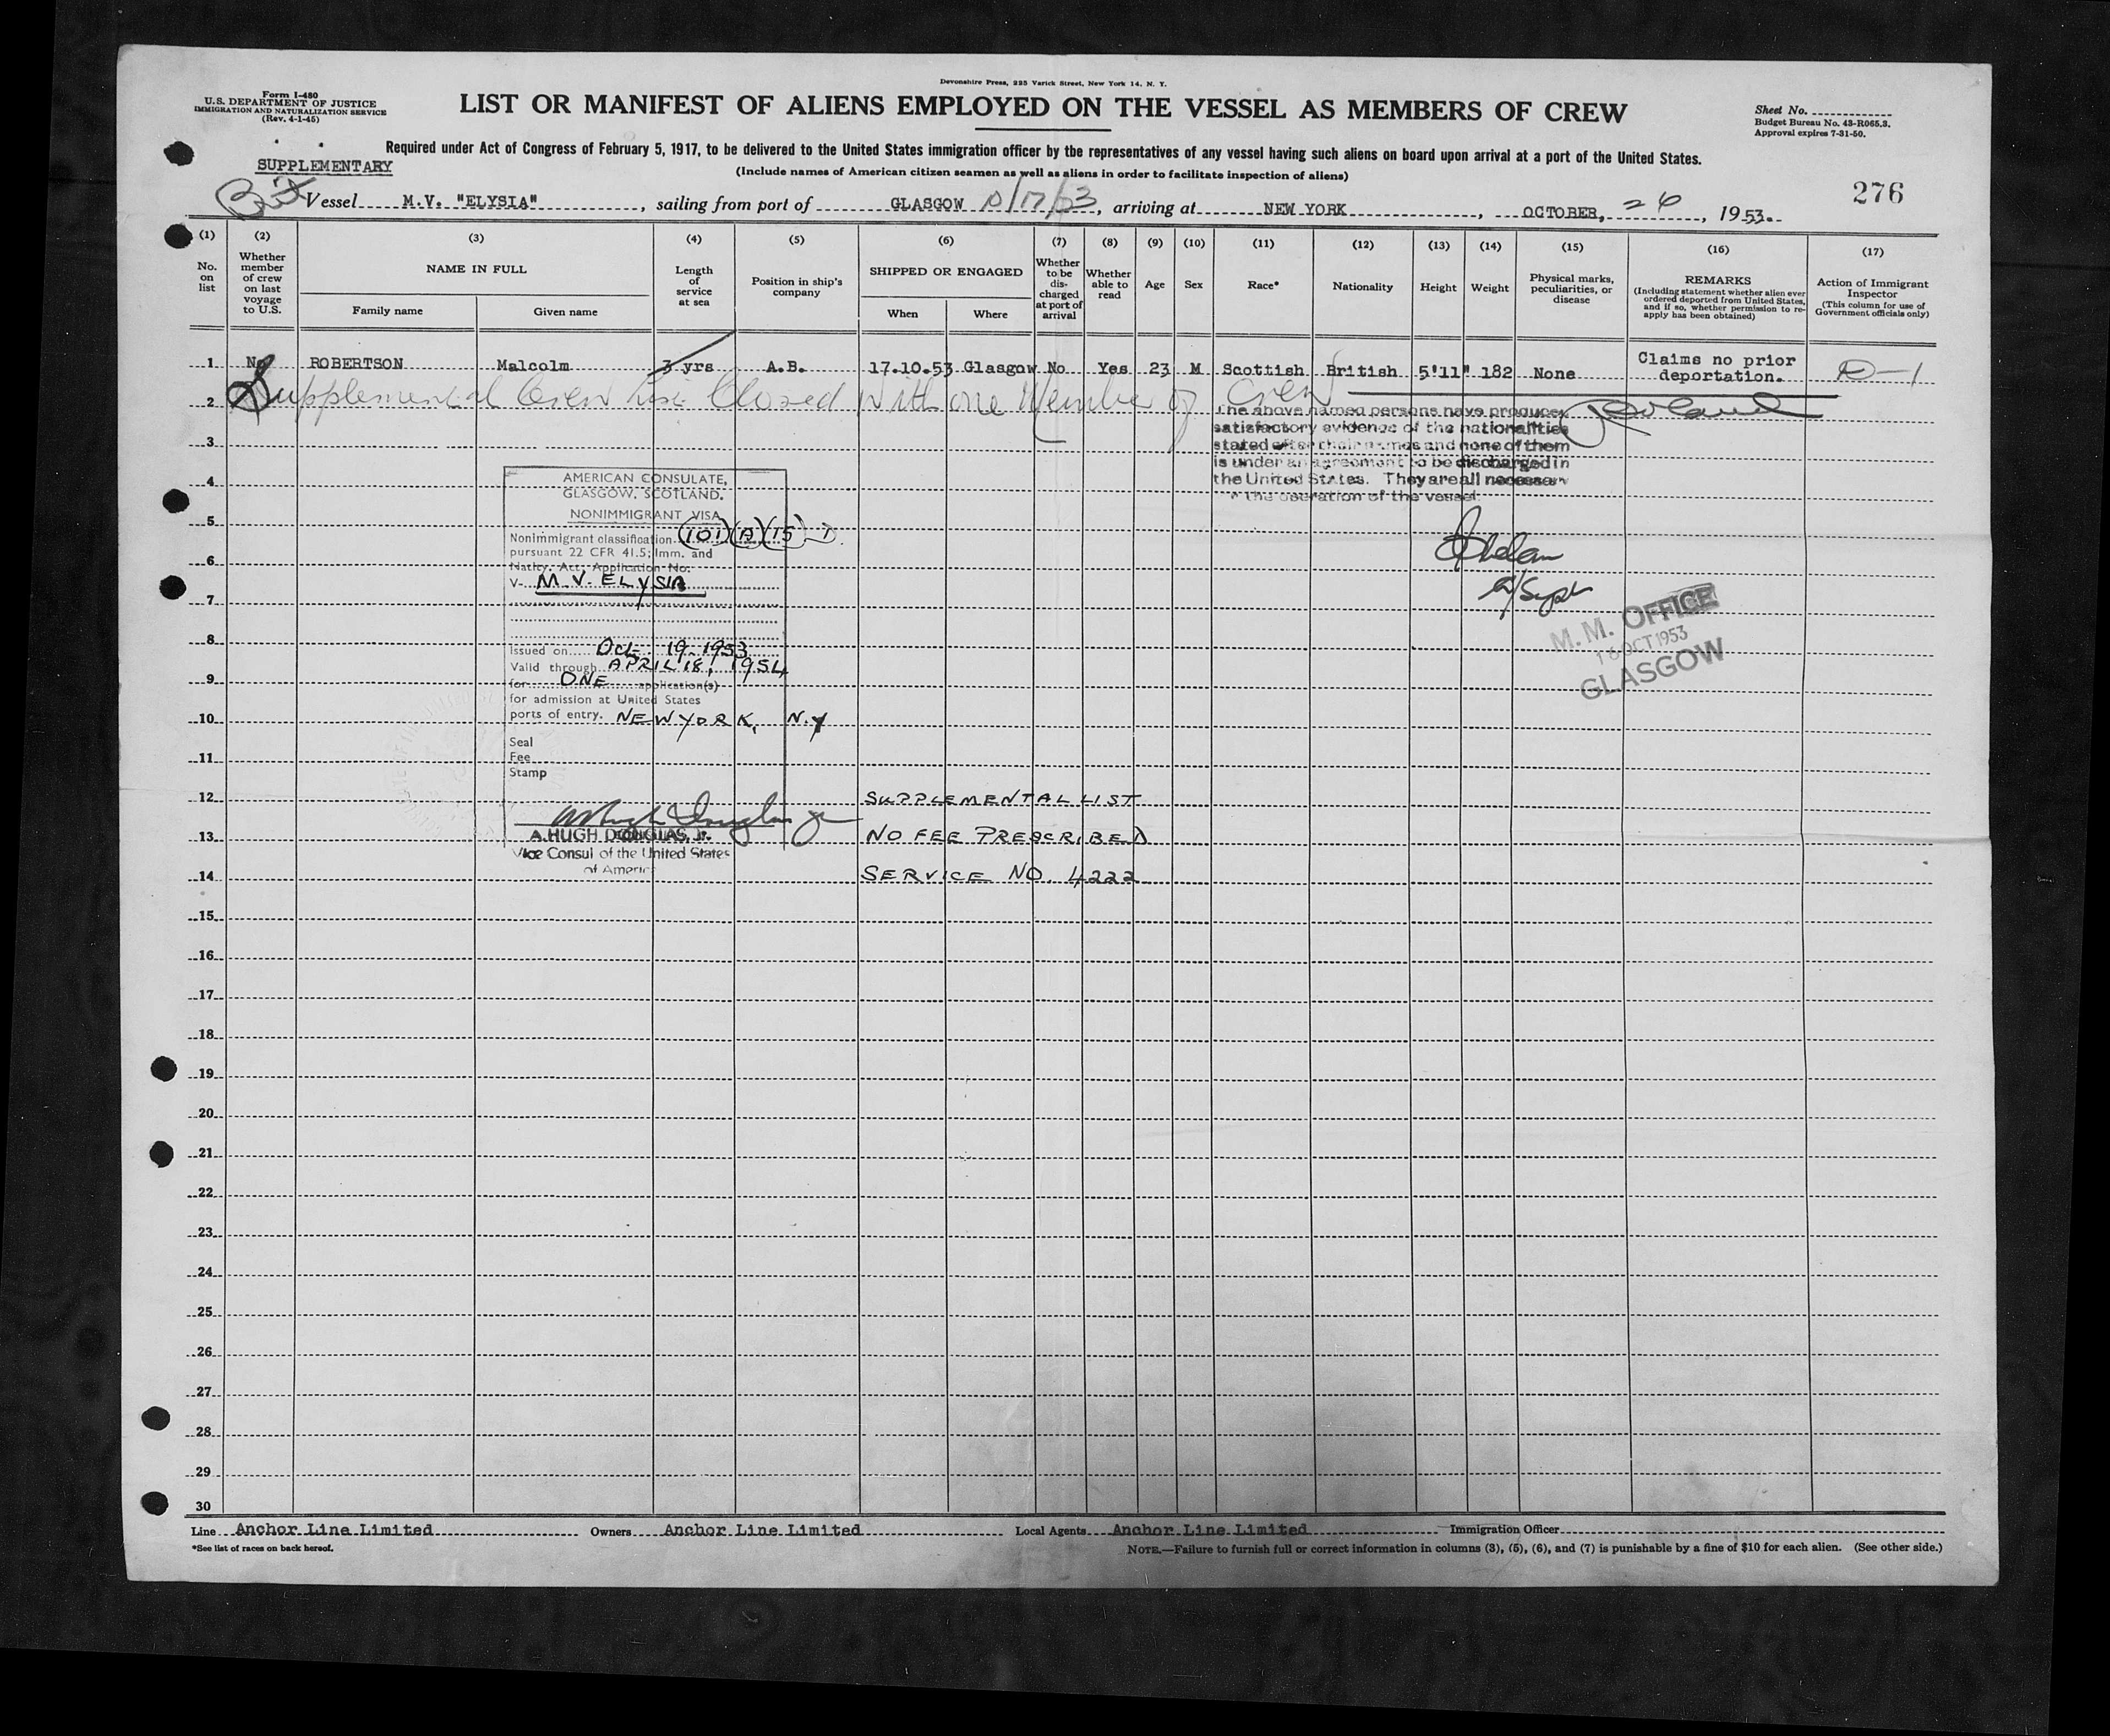 Devonshire Press, 225 Varick Street, New York 14, N. Y.
Form I-480
U.S. DEPARTMENT OF JUSTICE
IMMIGRATION AND NATURALIZATION SERVICE
(Rev. 4-1-45)
LIST OR MANIFEST OF ALIENS EMPLOYED ON THE VESSEL AS MEMBERS OF CREW
Sheet No.
Budget Bureau No. 43-R065.3.
Approval expires 7-31-50.
Required under Act of Congress of February 5, 1917, to be delivered to the United States immigration officer by the representatives of any vessel having such aliens on board upon arrival at a port of the United States.
SUPPLEMENTARY
(Include names of American citizen seamen as well as aliens in order to facilitate inspection of aliens)
276
Brit Vessel M.V. "ELYSIA", sailing from port of GLASGOW 10/17/53, arriving at NEW YORK, OCTOBER, 26, 1953.
(1) (2) (3) (4) (5) (6) (7) (8) (9) (10) (11) (12) (13) (14) (15) (16) (17)
No. on list
Whether member of crew on last voyage to U.S.
NAME IN FULL
Family name
Given name
Length of service at sea
Position in ship's company
SHIPPED OR ENGAGED
When
Where
Whether to be discharged at port of arrival
Whether able to read
Age
Sex
Race*
Nationality
Height
Weight
Physical marks, peculiarities, or disease
REMARKS
(Including statement whether alien ever ordered deported from United States, and if so, whether permission to re-apply has been obtained)
Action of Immigrant Inspector
(This column for use of Government officials only)
1 No ROBERTSON Malcolm 3 yrs A.B. 17.10.53 Glasgow No Yes 23 M Scottish British 5'11" 182 None Claims no prior deportation. D-1
2 Supplemental Crew List Closed With one Member of Crew
The above named persons have produced
satisfactory evidence of the nationalities
stated after their names and none of them
is under an agreement to be discharged in
the United States. They are all necessary
the operation of the vessel
3
4
5
6
7
8
9
10
11
12
13
14
15
16
17
18
19
20
21
22
23
24
25
26
27
28
29
30
AMERICAN CONSULATE,
GLASGOW, SCOTLAND.
NONIMMIGRANT VISA
Nonimmigrant classification (101)(A)(15)
pursuant 22 CFR 41.5; Imm. and
Natlty. Act; Application No.
V- M.V. ELYSIA
Issued on Oct. 19, 1953
Valid through APRIL 18, 1954
for ONE application(s)
for admission at United States
ports of entry. NEW YORK, N.Y
Seal
Fee
Stamp
A. HUGH DOUGLAS, Jr.
Vice Consul of the United States
of America
SUPPLEMENTAL LIST
NO FEE PRESCRIBED
SERVICE NO. 4222
M. M. OFFICE
16 OCT 1953
GLASGOW
Line Anchor Line Limited Owners Anchor Line Limited Local Agents Anchor Line Limited Immigration Officer
*See list of races on back hereof.
NOTE.—Failure to furnish full or correct information in columns (3), (5), (6), and (7) is punishable by a fine of $10 for each alien. (See other side.)